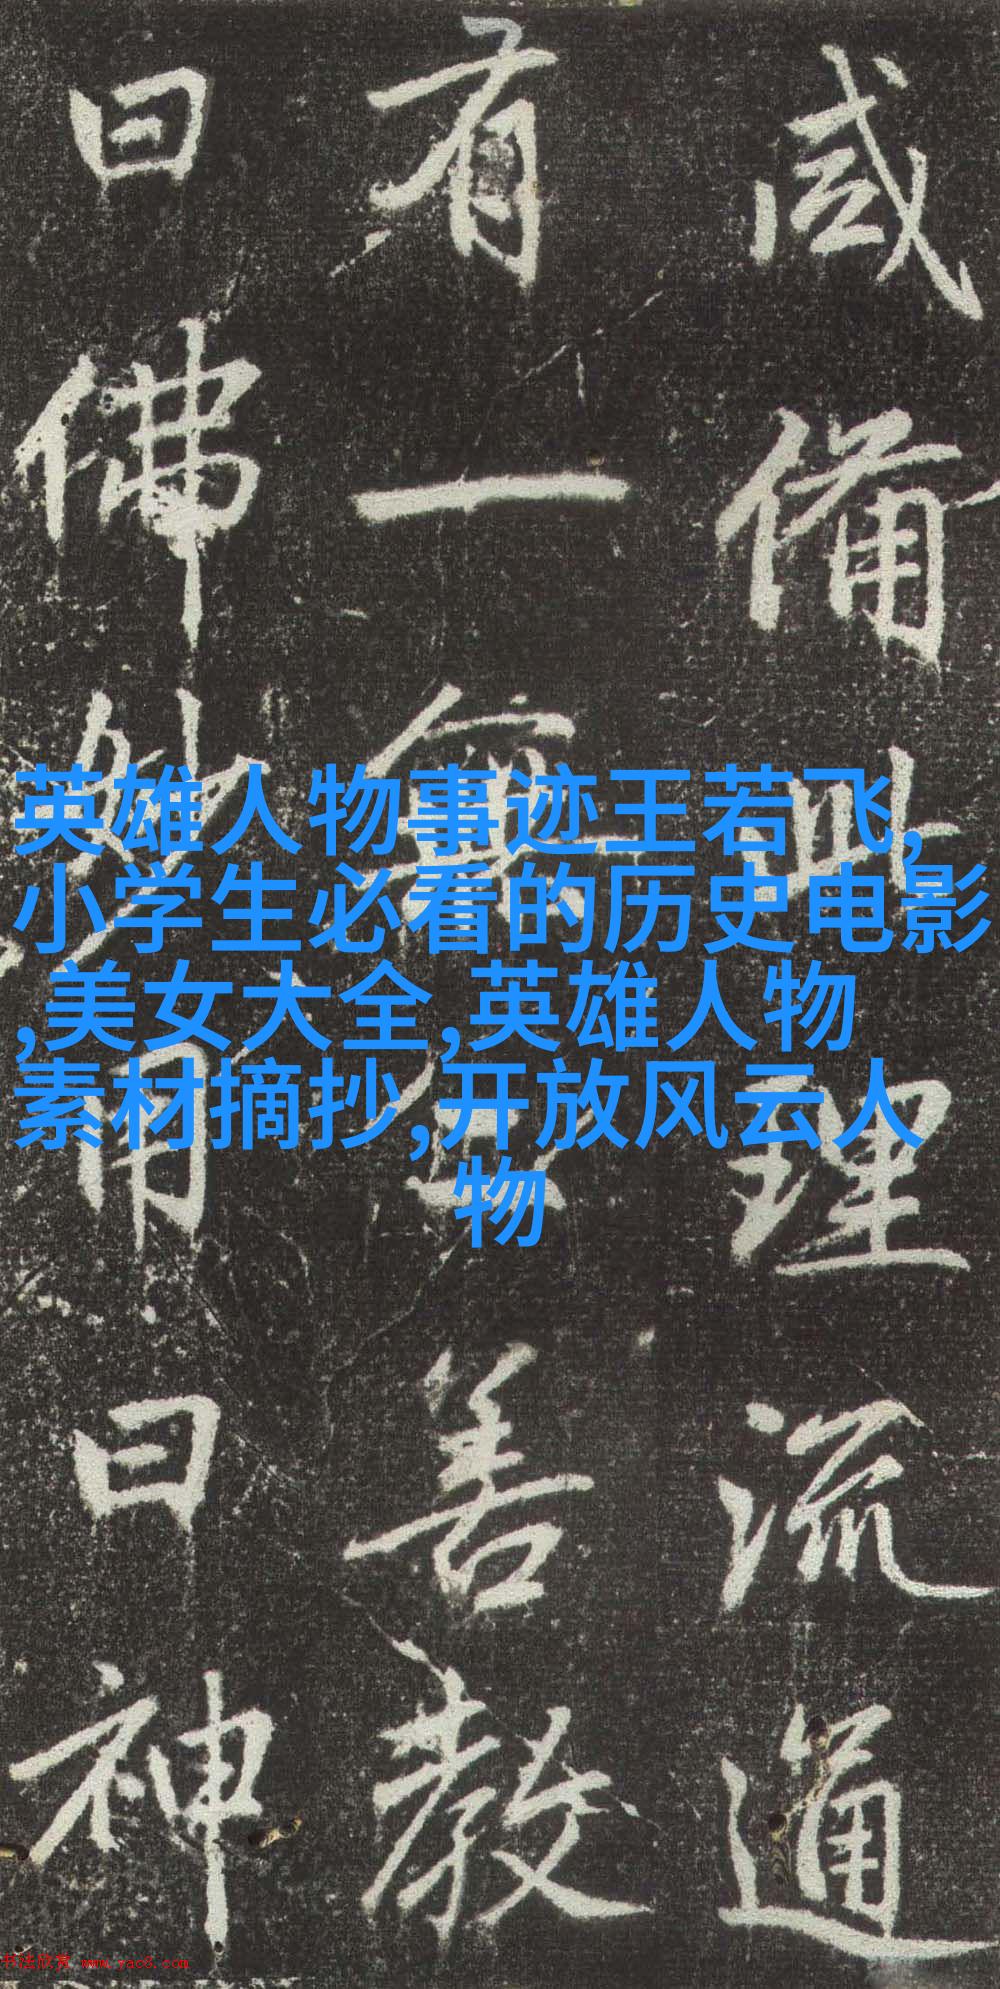 咸備此理流通
有一善教
曰佛妙用曰神
英雄人物事迹王若飞,
小学生必看的历史电影
,美女大全,英雄人物
素材摘抄,开放风云人
物
书法欣赏 www.yac8.com